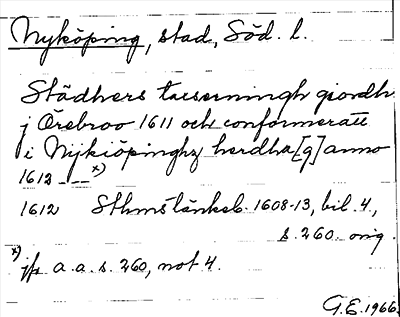 Nyköping, stad, Söd. l.
Städhers taxerningh giordh
j Örebroo 1611 och conformeratt
i Nykiöpinghz herdha[g] anno
1612 _ _ _ x)
1612 Sthmstänkeb. 1608-13, bil. 4,
s. 260. orig.
x) jfr a.a. s. 260, not 4.
G.E. 1966.